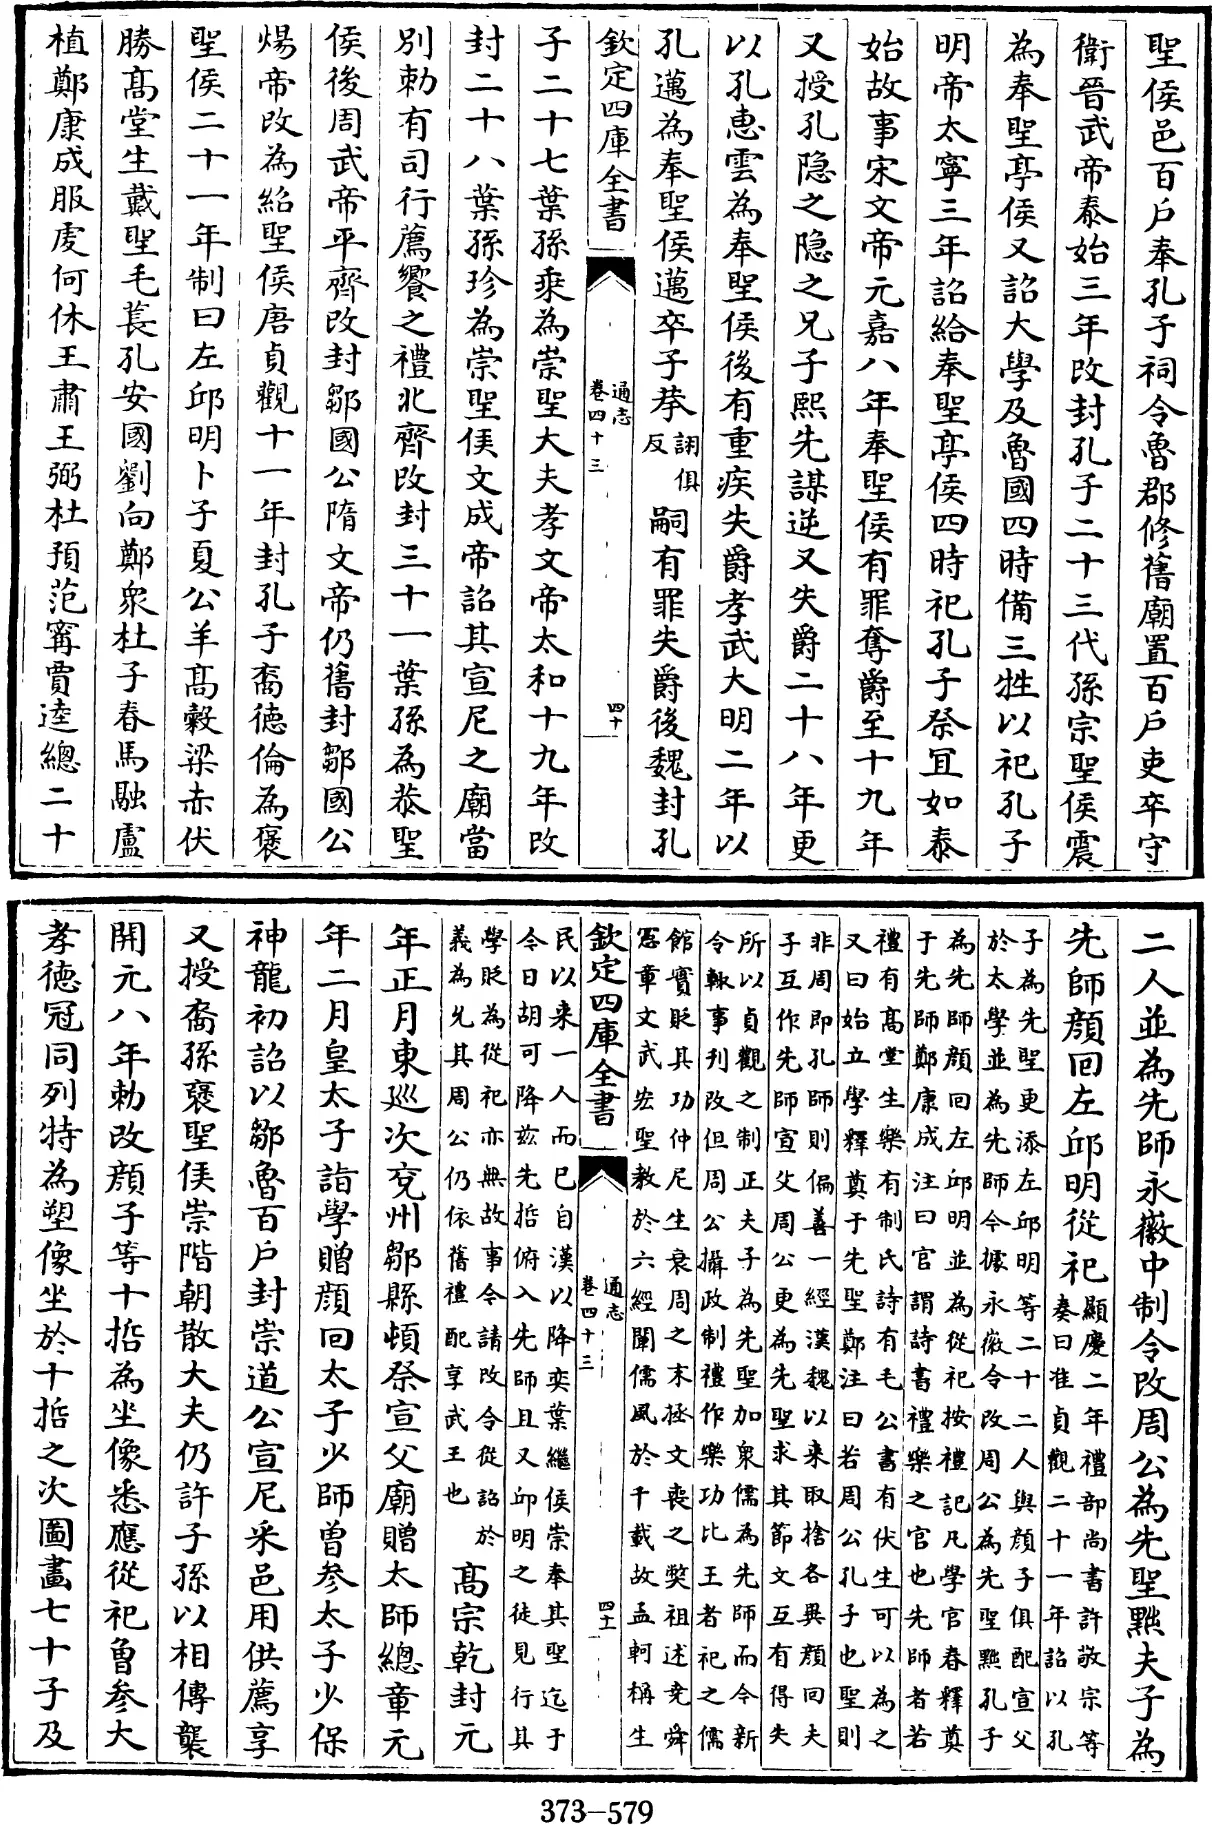 聖侯邑百户奉孔子祠令魯郡修舊廟置百户吏卒守
衛晉武帝泰始三年改封孔子二十三代孫宗聖侯震
為奉聖亭侯又詔大學及魯國四時備三牲以祀孔子
明帝太寧三年詔給奉聖亭侯四時祀孔子祭冝如泰
始故事宋文帝元嘉八年奉聖侯有罪奪爵至十九年
又授孔隐之隐之兄子熙先謀逆又失爵二十八年更
以孔惠雲為奉聖侯後有重疾失爵孝武大明二年以
孔邁為奉聖侯邁卒子荂詡俱反嗣有罪失爵後魏封孔
欽定四庫全書
通志
卷四十三
四十
子二十七葉孫乗為崇聖大夫孝文帝太和十九年改
封二十八葉孫珍為崇聖侯文成帝詔其宣尼之廟當
別勅有司行薦饗之禮北齊改封三十一葉孫為恭聖
侯後周武帝平齊改封鄒國公隋文帝仍舊封鄒國公
煬帝改為紹聖侯唐貞觀十一年封孔子裔徳倫為褒
聖侯二十一年制曰左邱明卜子夏公羊髙穀梁赤伏
勝髙堂生戴聖毛萇孔安國劉向鄭衆杜子春馬融盧
植鄭康成服虔何休王肅王弼杜預范甯賈逵總二十
二人並為先師永徽中制令改周公為先聖黜夫子為
先師顔回左邱明從祀
顯慶二年禮部尚書許敬宗等
奏曰准貞觀二十一年詔以孔
子為先聖更添左邱明等二十二人與顔子俱配宣父
於太學並為先師今據永徽令改周公為先聖黜孔子
為先師顔回左邱明並為從祀按禮記凡學官春釋奠
于先師鄭康成注曰官謂詩書禮樂之官也先師者若
禮有髙堂生樂有制氏詩有毛公書有伏生可以為之
又曰始立學釋奠于先聖鄭注曰若周公孔子也聖則
非周即孔師則偏善一經漢魏以来取捨各異顔回夫
子互作先師宣父周公更為先聖求其節文互有得失
所以貞觀之制正夫子為先聖加衆儒為先師而今新
令輙事刋改但周公攝政制禮作樂功比王者祀之儒
館實貶其功仲尼生衰周之末拯文喪之弊祖述堯舜
憲章文武宏聖教於六經闡儒風於千載故孟軻稱生
欽定四庫全書
通志
卷四十三
四十一
民以来一人而已自漢以降奕葉繼侯崇奉其聖迄于
今日胡可降兹先哲俯入先師且又邱明之徒見行其
學貶為從祀亦無故事今請改令從詔於
義為允其周公仍依舊禮配享武王也
髙宗乾封元
年正月東廵次兖州鄒縣頓祭宣父廟贈太師總章元
年二月皇太子詣學贈顔回太子少師曽參太子少保
神龍初詔以鄒魯百户封崇道公宣尼采邑用供薦享
又授裔孫褒聖侯崇階朝散大夫仍許子孫以相傳襲
開元八年勅改顔子等十哲為坐像悉應從祀曽參大
孝徳冠同列特為塑像坐於十哲之次圖畫七十子及
373-579